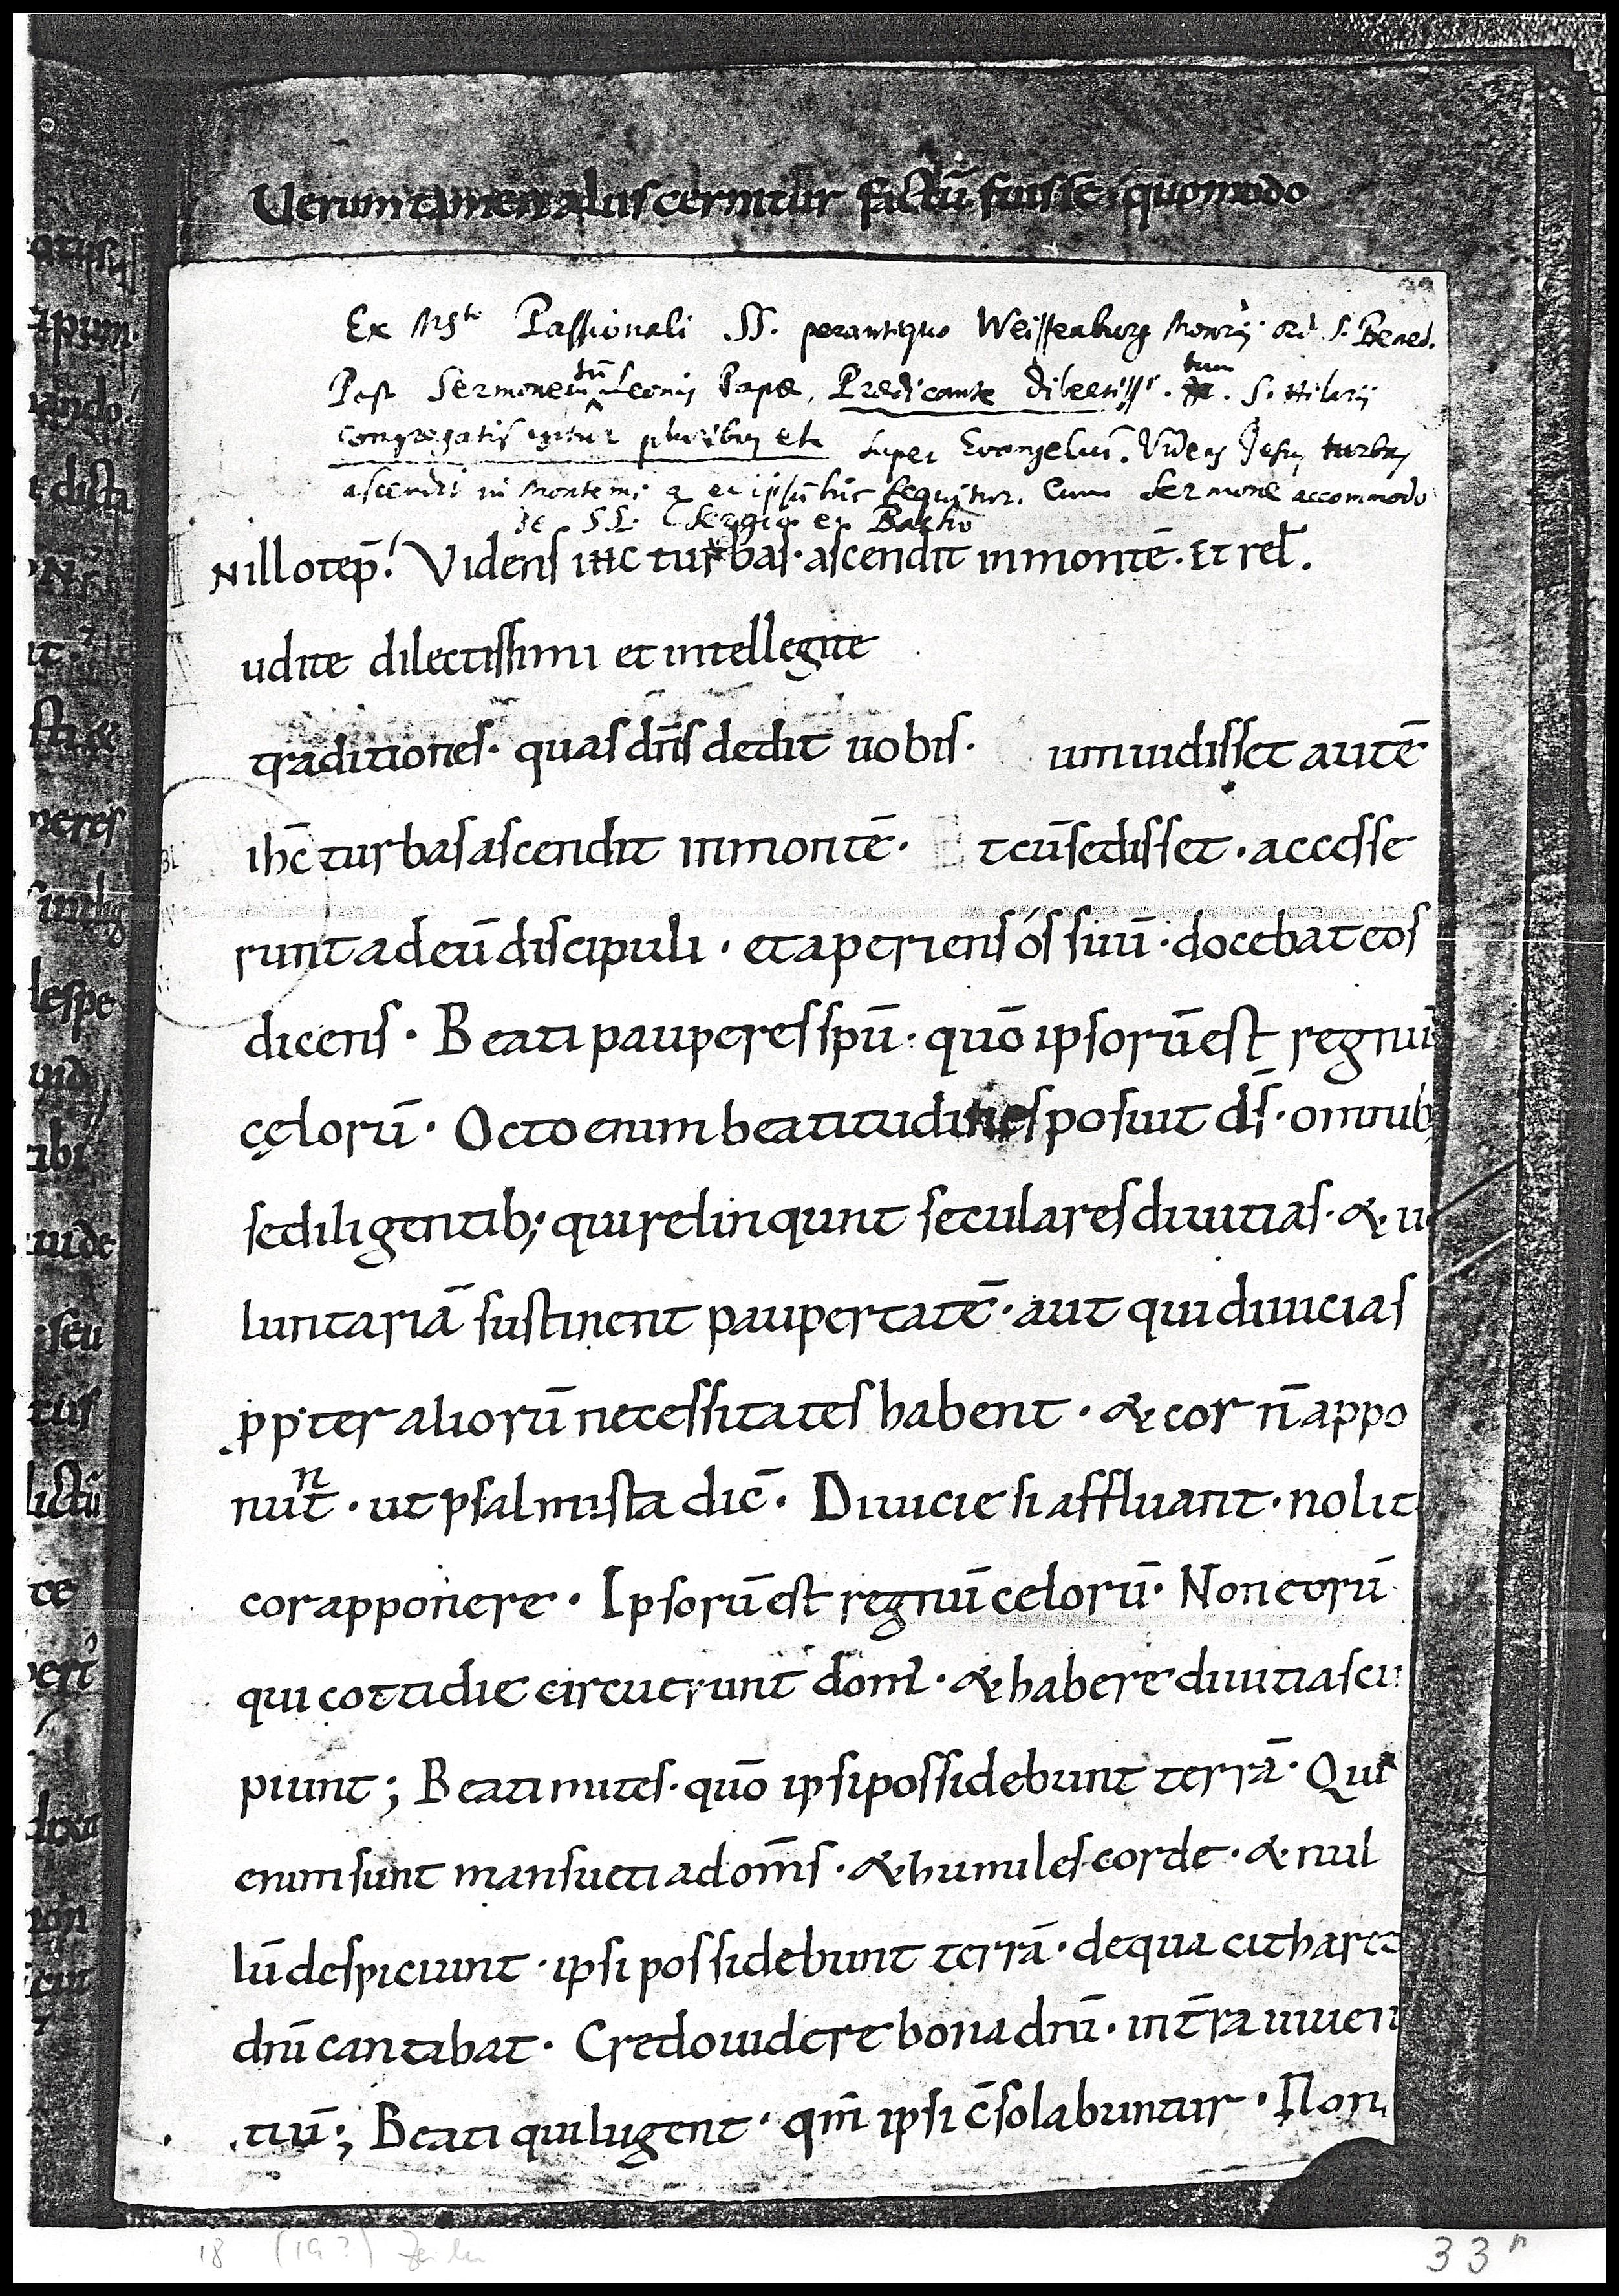 Ueruntamen aliis cernitur factū fuisse. quomodo
Ex Msto Passionali SS. perantiquo Weissenburg Monrij ord. S. Bened.
Post Sermonem tū Leonis Papæ, Predicante dilectiss. tum S. Hilarij
congregatis igitur pluribus etc super Evangeliū. Videns Jesus turbas
ascendit in Montem; sequitur. Cum Sermone accommodo
de SS. Sergio et Bacho
N illo tēp̄. Videns ihc turbas· ascendit in montē· Et rel̄.
udite dilectissimi et intellegite
traditiones· quas dn̄s dedit uobis· um uidisset autē
ih̄c turbas ascendit in montē· E t cū sedisset· accesse
runt ad eū discipuli· et aperiens ós suū· docebat eos
dicens· Beati pauperes spū· quō ipsorū est regnū
cęlorū· Octo enim beatitudines posuit d̄s· omnib;
se diligentib; qui relinqunt seculares diuitias· & uo
luntariā sustinent paupertatē· aut qui diuicias
ppter aliorū necessitates habent· & cor n̄ appo
nunt· ut psalmista dic̄· Diuicie si affluant· nolit
cor apponere· Ipsorū est regnū celorū· Non eorū
qui cottidie circuerunt dom̄· & habere diuitias cu
piunt; Beati mites· quō ipsi possidebunt terrā· Qui
enim sunt mansueti ad om̄s· & humiles corde· & nul
lū despiciunt· ipsi possidebunt terrā· de qua citharet
dn̄i cantabat· Credo uidere bona dn̄i· in t̄ra uiuen
tiū; Beati qui lugent· qm̄ ipsi c̄solabuntur· Non
18 (19?) Zeilen
33r